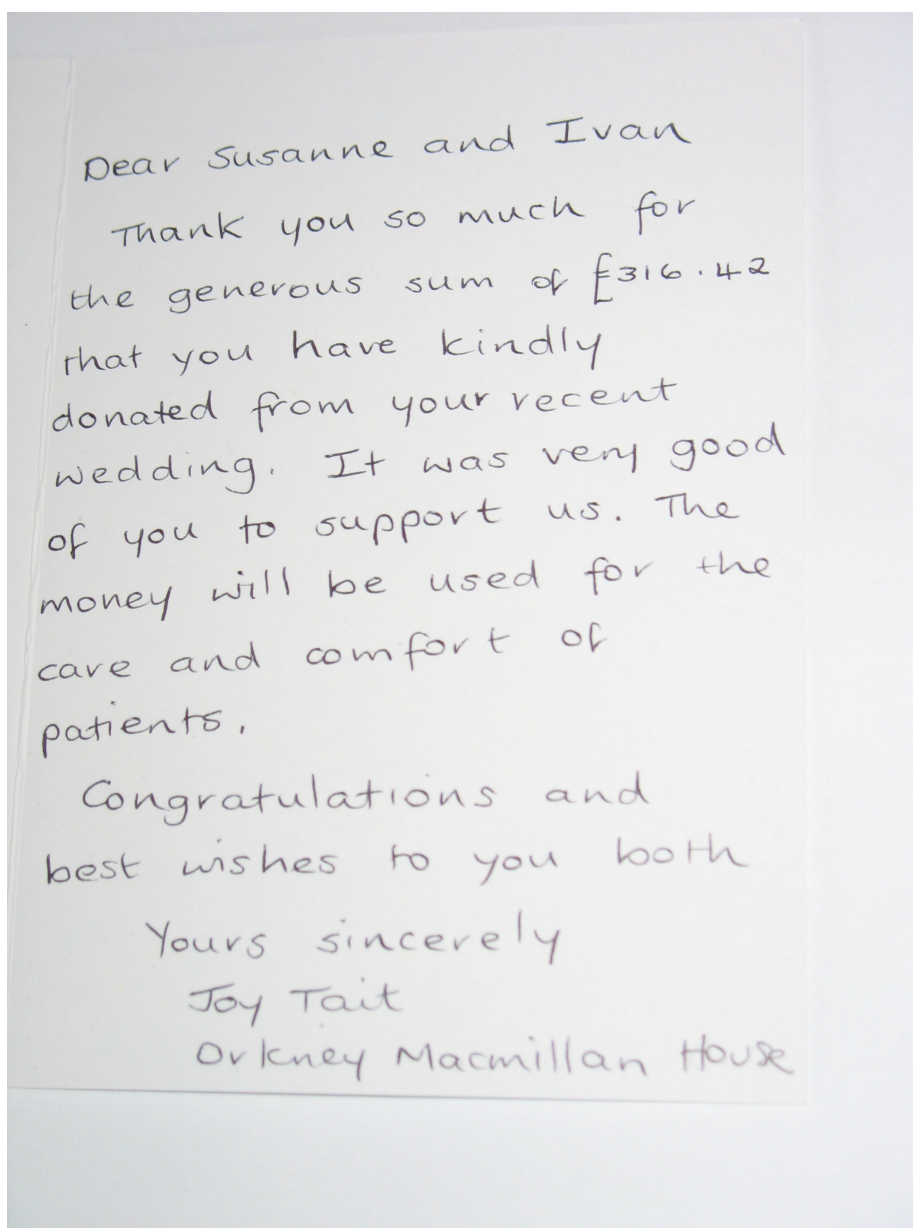 Dear Susanne and Ivan
Thank you so much for
the generous sum of £316.42
that you have kindly
donated from your recent
wedding. It was very good
of you to support us. The
money will be used for the
care and comfort of
patients.
Congratulations and
best wishes to you both
Yours sincerely
Joy Tait
Orkney Macmillan House